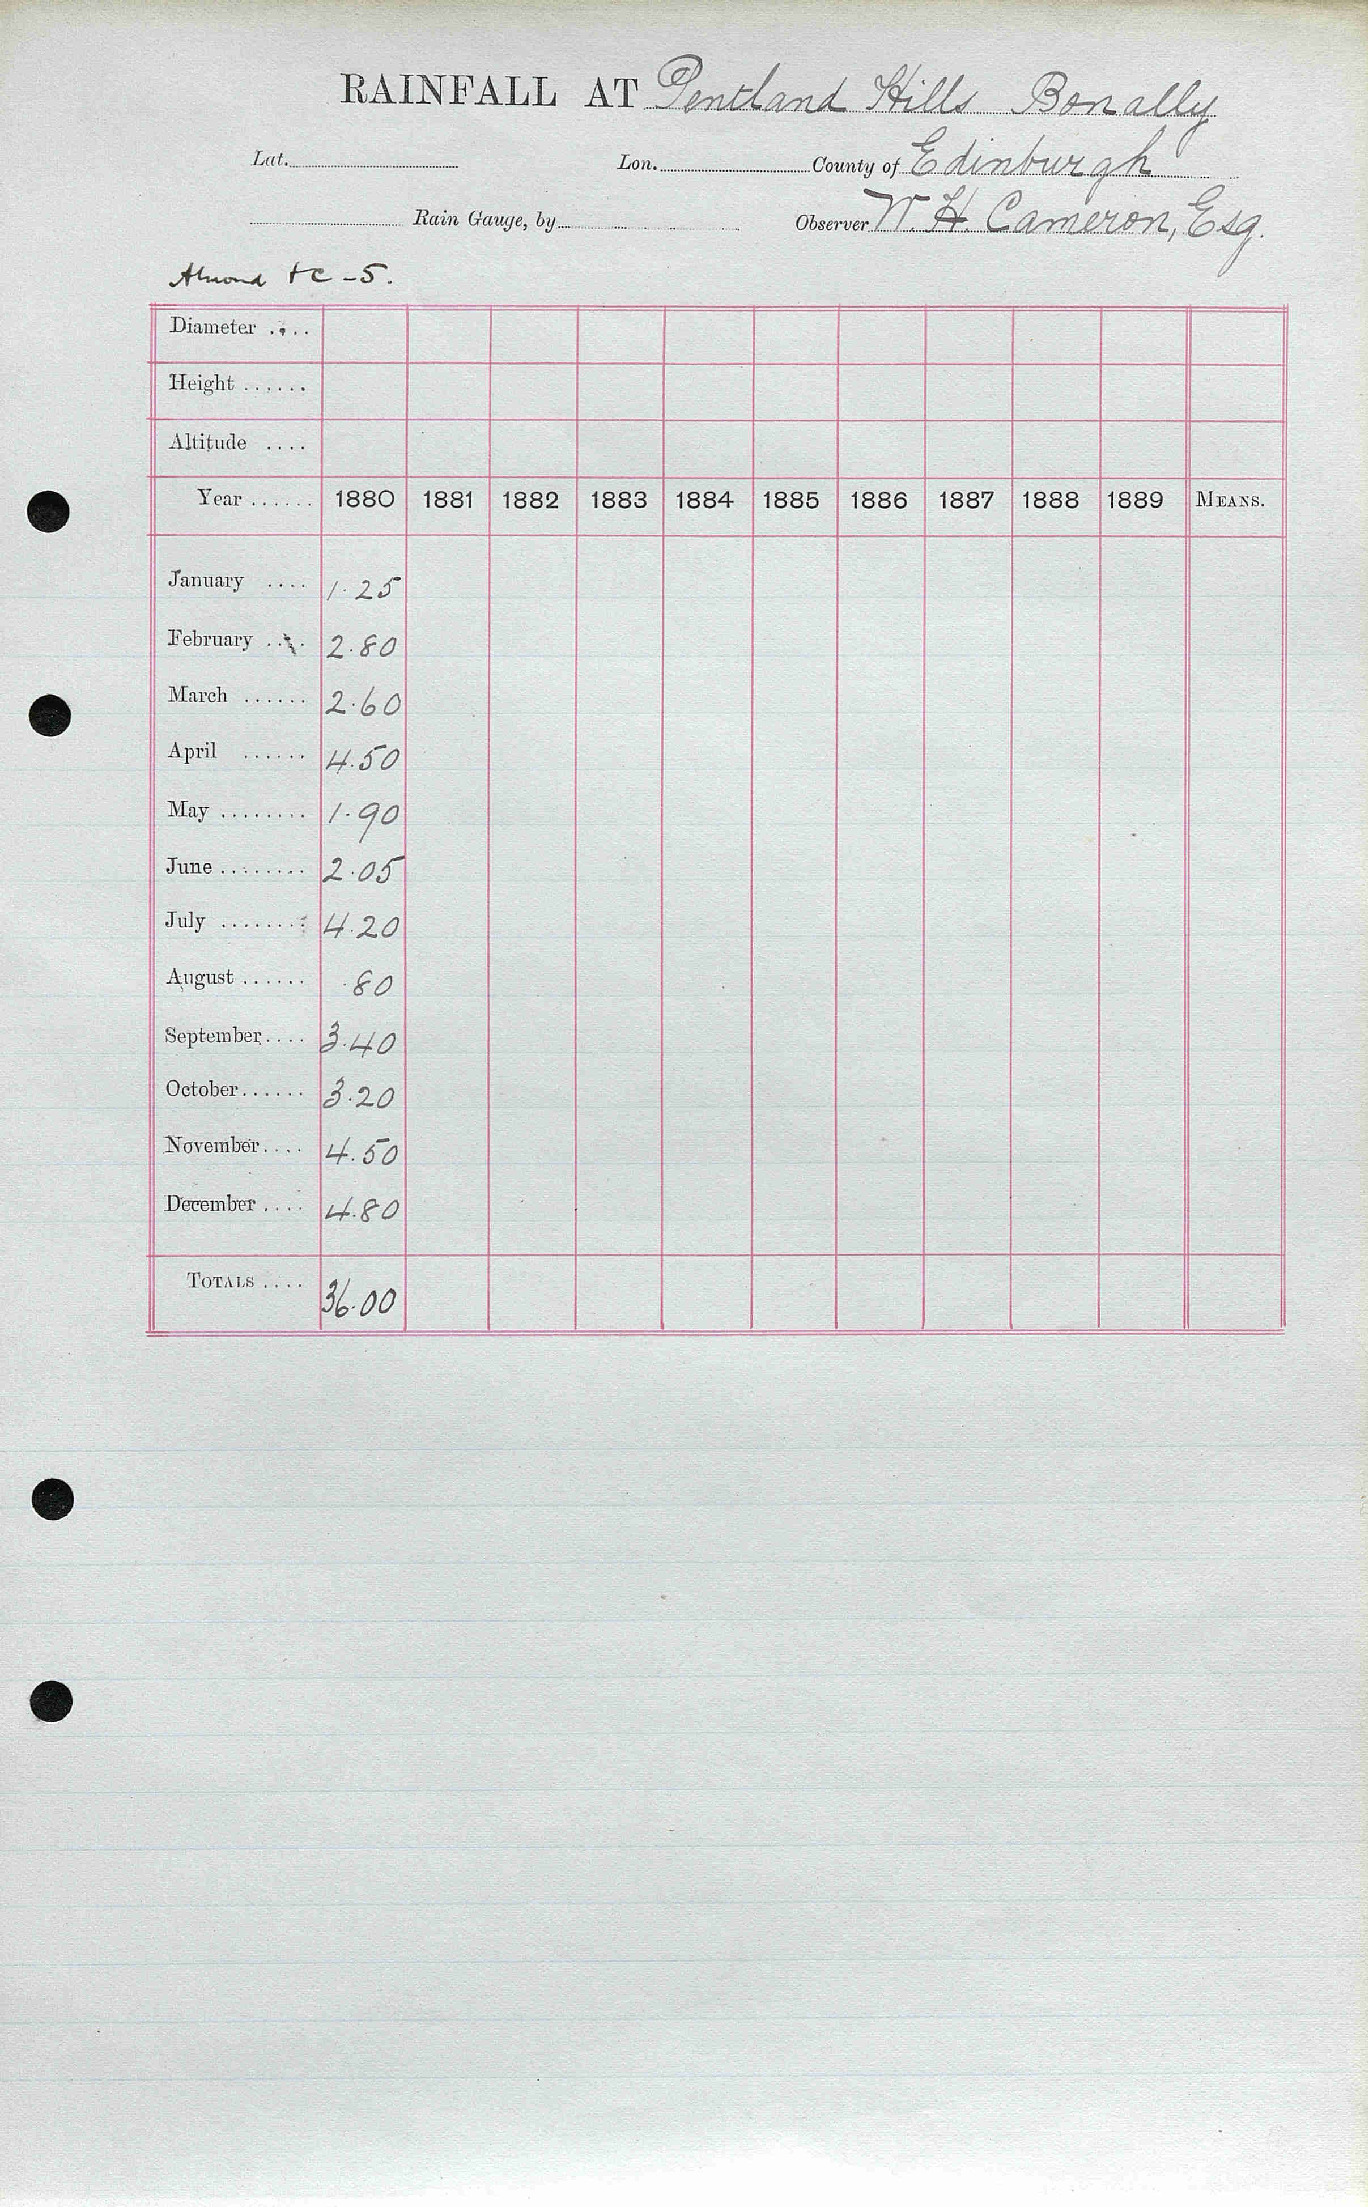 RAINFALL AT Pentland Hills Bonally
Lat. Lon. County of Edinburgh
Rain Gauge, by Observer W. H. Cameron, Esq.
Almond &c - 5.
Diameter ....
Height ......
Altitude ....
Year ...... 1880 1881 1882 1883 1884 1885 1886 1887 1888 1889 MEANS.
January .... 1.25
February .... 2.80
March ...... 2.60
April ...... 4.50
May ........ 1.90
June ........ 2.05
July ........ 4.20
August ...... .80
September .... 3.40
October ...... 3.20
November .... 4.50
December .... 4.80
TOTALS .... 36.00